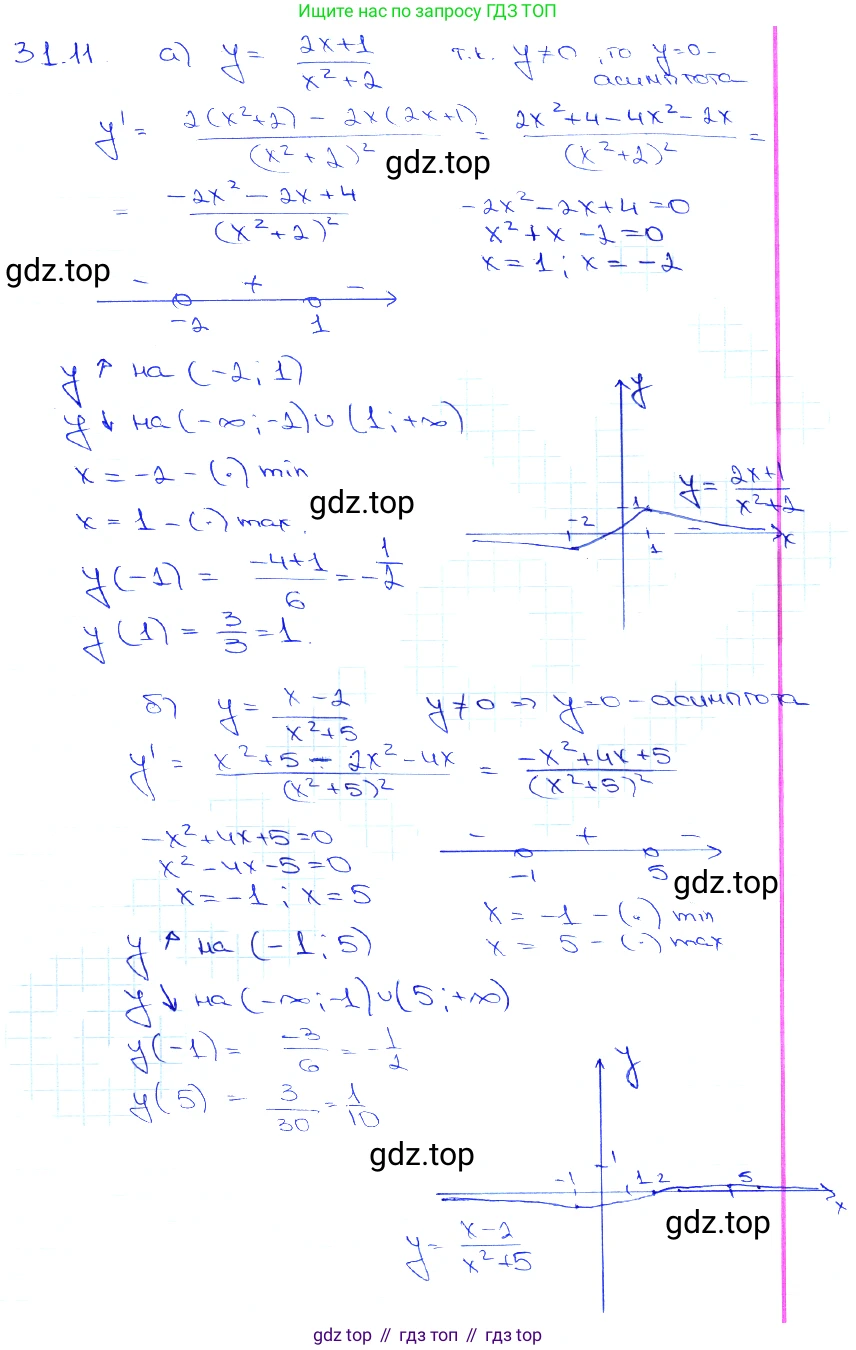 Ищите нас по запросу ГДЗ ТОП
31.11 а) y = (2x+1)/(x²+2) т.к. y≠0, то y=0 -
асимптота
y' = (2(x²+2) - 2x(2x+1))/(x²+2)² = (2x²+4-4x²-2x)/(x²+2)² =
gdz.top
= (-2x²-2x+4)/(x²+2)² -2x²-2x+4=0
x²+x-2=0
x=1; x=-2
gdz.top
- + -
-2 1
y↑ на (-2; 1)
y↓ на (-∞; -2)∪(1; +∞)
x = -2 - (·) min
x = 1 - (·) max.
gdz.top
y(-1) = (-4+1)/6 = -1/2
y(1) = 3/3 = 1.
y
y = (2x+1)/(x²+2)
1
-2
1
x
б) y = (x-2)/(x²+5) y≠0 ⇒ y=0 - асимптота
y' = (x²+5-2x²-4x)/(x²+5)² = (-x²+4x+5)/(x²+5)²
-x²+4x+5=0
x²-4x-5=0
x=-1; x=5
- + -
-1 5
gdz.top
x = -1 - (·) min
x = 5 - (·) max
y↑ на (-1; 5)
y↓ на (-∞; -1)∪(5; +∞)
y(-1) = -3/6 = -1/2
y(5) = 3/30 = 1/10
gdz.top
y
1
-1 1 2 5
x
gdz.top
y = (x-2)/(x²+5)
gdz top // гдз топ // gdz top